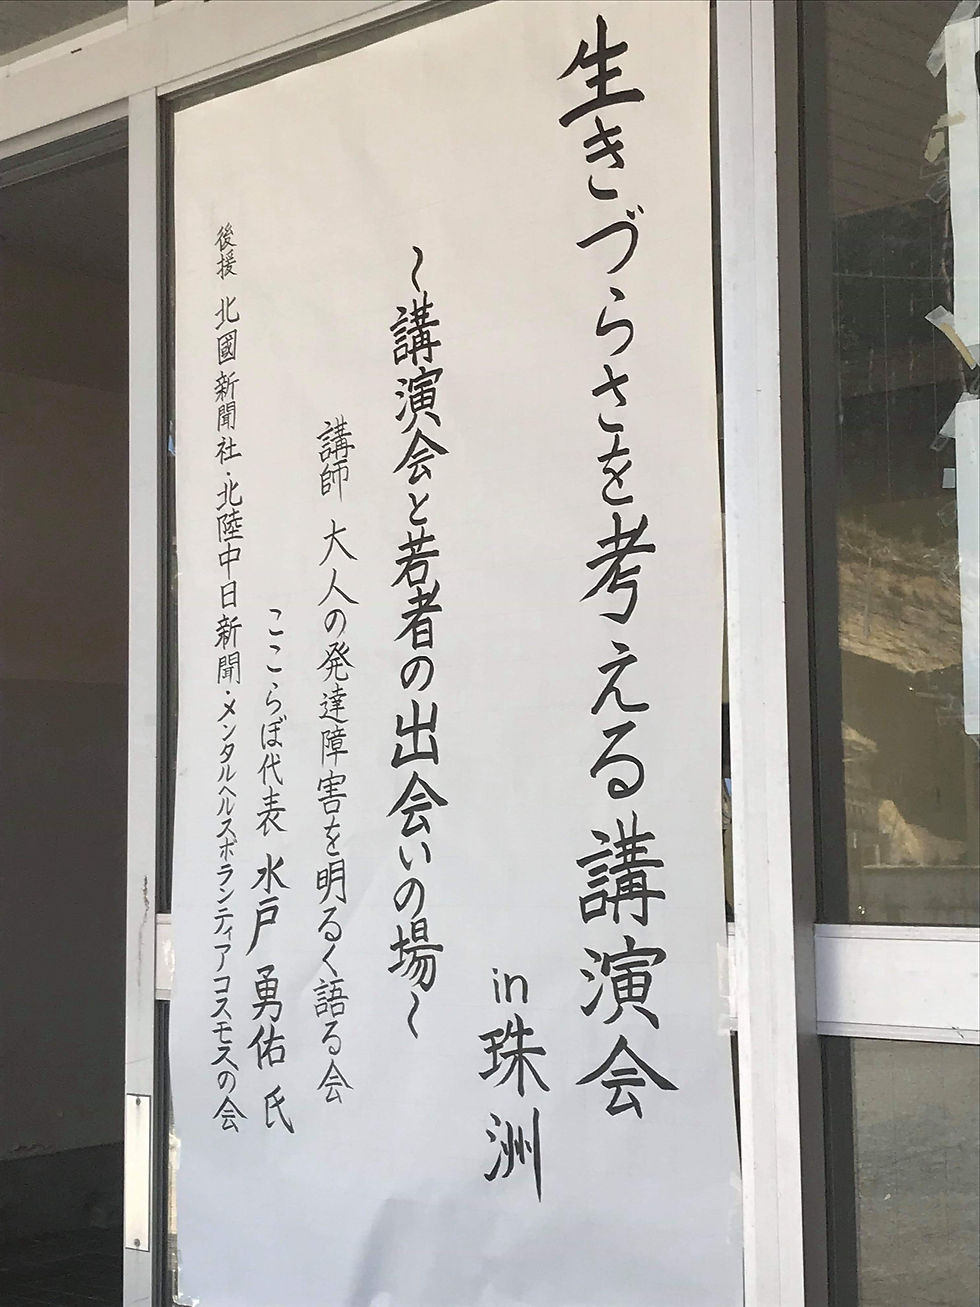 生きづらさを考える講演会
in珠洲
〜講演会と若者の出会いの場〜
講師 大人の発達障害を明るく語る会
ここらぼ代表 水戸 勇佑 氏
後援 北國新聞社・北陸中日新聞・メンタルヘルスボランティアコスモスの会